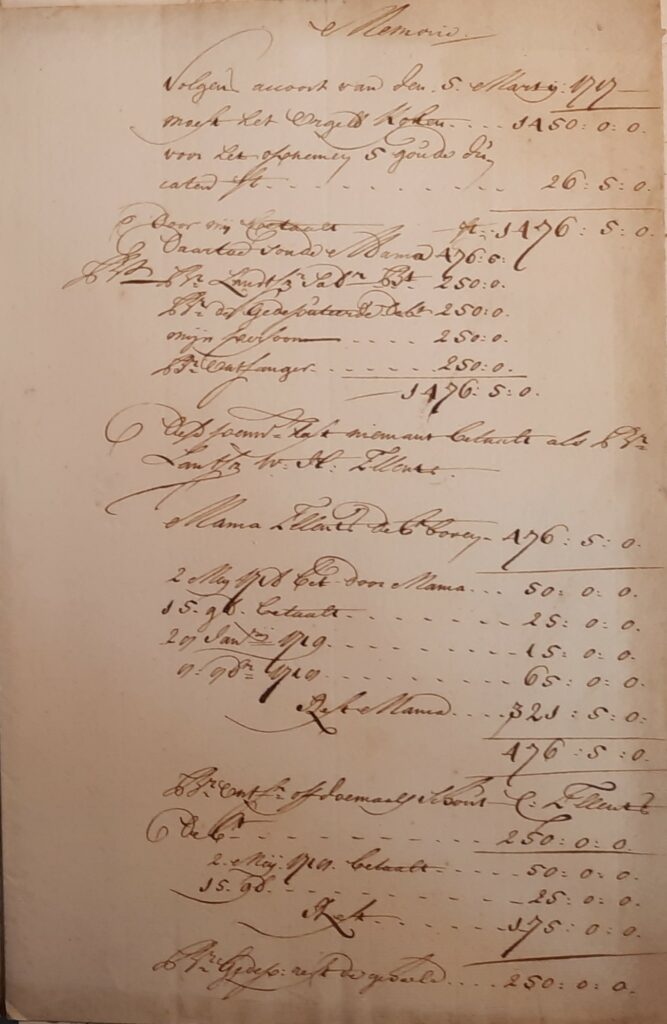 Memorie
Volgens accoort van den 5 Martij 1717
moest het Orgel Kosten .... 1450: 0: 0.
voor het opnemen 5 goude du
caten ft. . . . . . . . . . 26: 5: 0.
Door mij betaalt ft. 1476: 5: 0
Daartoe soude Mama 476:0:
Hr. Landts 250:0.
Hr. de Gedeputeerde 250:0.
mijn persoon . . . . 250:0.
Hr. Ontfanger . . . . 250:0.
1476: 5: 0.
niemant betaalt als Hr.
W. H. Ellents
Mama Ellents Debt boven 476: 5: 0.
2 Meij 1718 bet. door Mama... 50: 0: 0.
15. 9b. betaalt . . . . . . . 25: 0: 0.
Janrij 1719. . . . . . . 15: 0: 0.
9br 1719 . . . . . . . 65: 0: 0.
Rest Mama . . . . 321: 5: 0.
476: 5: 0.
Hr. Ontfr. of doemaals Schout C: Ellents
Debt . . . . . . . . . 250: 0: 0.
2. Meij betaalt . . . . 50: 0: 0.
15. 9b. . . . . . . . . 25: 0: 0.
Rest . . . . . . . 175: 0: 0.
Hr. Gedep: rest de geheele .... 250: 0: 0.